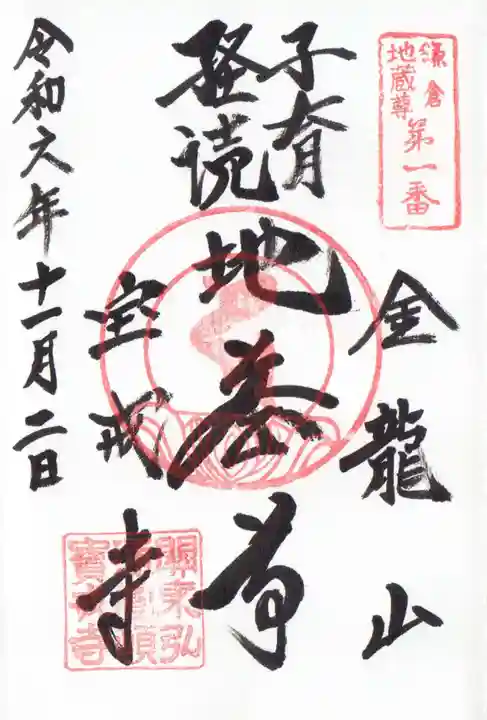 鎌倉
地蔵尊
第一番
金龍山
子育
経読
地蔵尊
宝戒寺
令和六年十一月二日
關東弘
寶戒寺